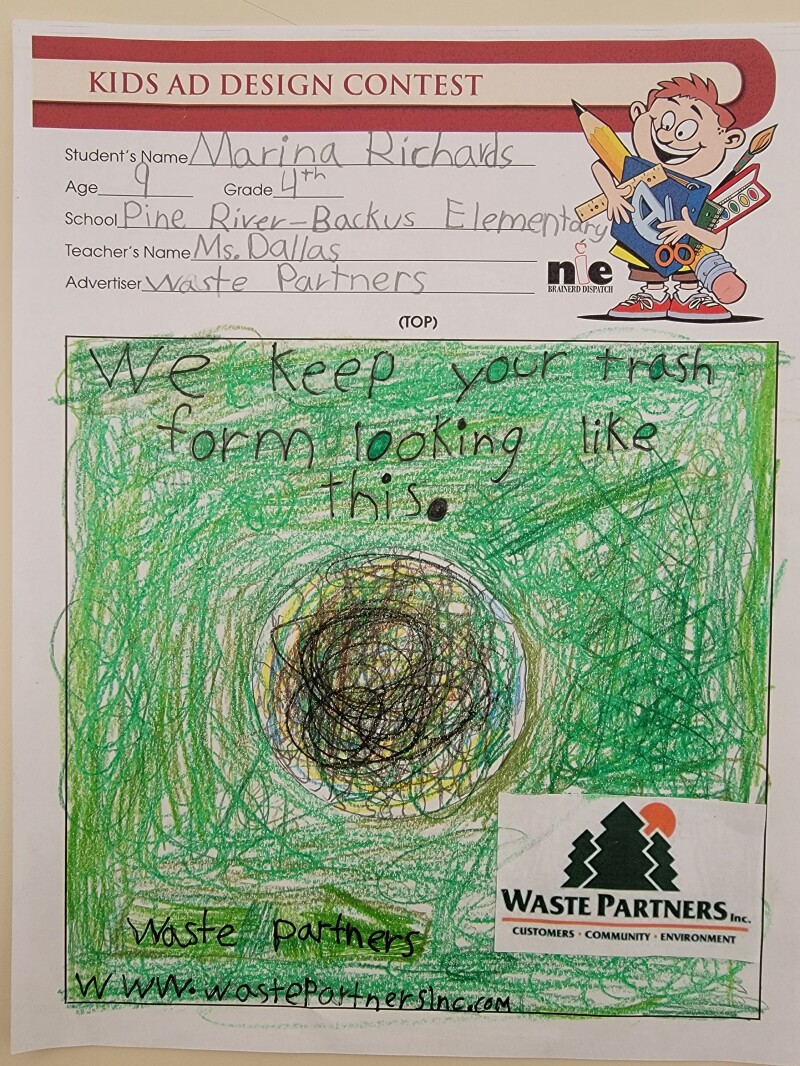 KIDS AD DESIGN CONTEST
Student's Name Marina Richards
Age 9 Grade 4th
School Pine River-Backus Elementary
Teacher's Name Ms. Dallas
Advertiser Waste Partners
nie
BRAINERD DISPATCH
(TOP)
We keep your trash
form looking like
this.
WASTE PARTNERS Inc.
CUSTOMERS · COMMUNITY · ENVIRONMENT
Waste partners
WWW.wastepartnersinc.com